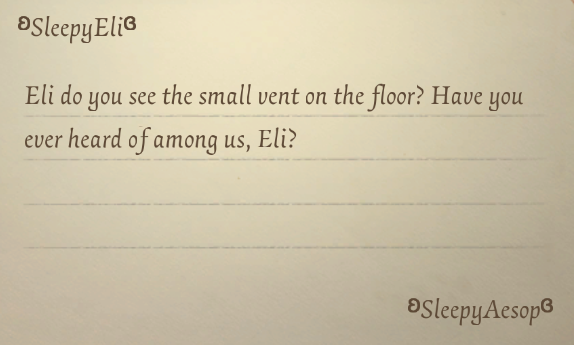 ʚSleepyEliɞ
Eli do you see the small vent on the floor? Have you
ever heard of among us, Eli?
ʚSleepyAesopɞ